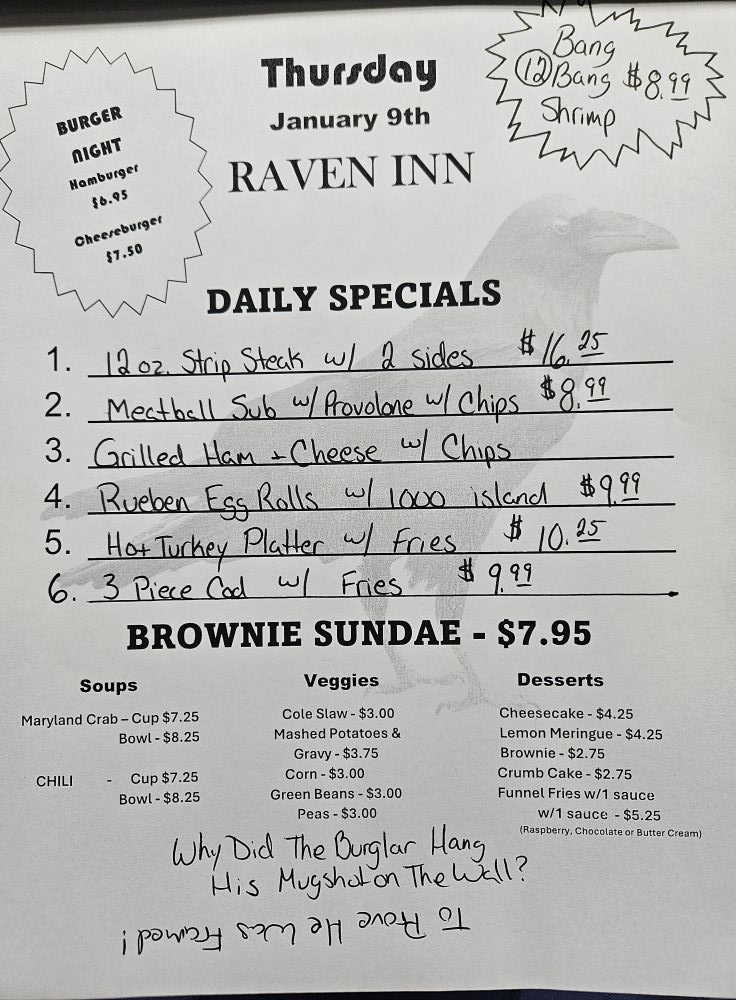 Thursday
January 9th
RAVEN INN
BURGER
NIGHT
Hamburger
$6.95
Cheeseburger
$7.50
Bang
12 Bang $8.99
Shrimp
DAILY SPECIALS
1. 12 oz. Strip Steak w/ 2 sides $16.25
2. Meatball Sub w/ Provolone w/ Chips $8.99
3. Grilled Ham + Cheese w/ Chips
4. Rueben Egg Rolls w/ 1000 island $9.99
5. Hot Turkey Platter w/ Fries $10.25
6. 3 Piece Cod w/ Fries $9.99
BROWNIE SUNDAE - $7.95
Soups
Maryland Crab – Cup $7.25
Bowl - $8.25
CHILI - Cup $7.25
Bowl - $8.25
Veggies
Cole Slaw - $3.00
Mashed Potatoes &
Gravy - $3.75
Corn - $3.00
Green Beans - $3.00
Peas - $3.00
Desserts
Cheesecake - $4.25
Lemon Meringue - $4.25
Brownie - $2.75
Crumb Cake - $2.75
Funnel Fries w/1 sauce
w/1 sauce - $5.25
(Raspberry, Chocolate or Butter Cream)
Why Did The Burglar Hang
His Mugshot on The Wall?
To Prove He Was Framed!